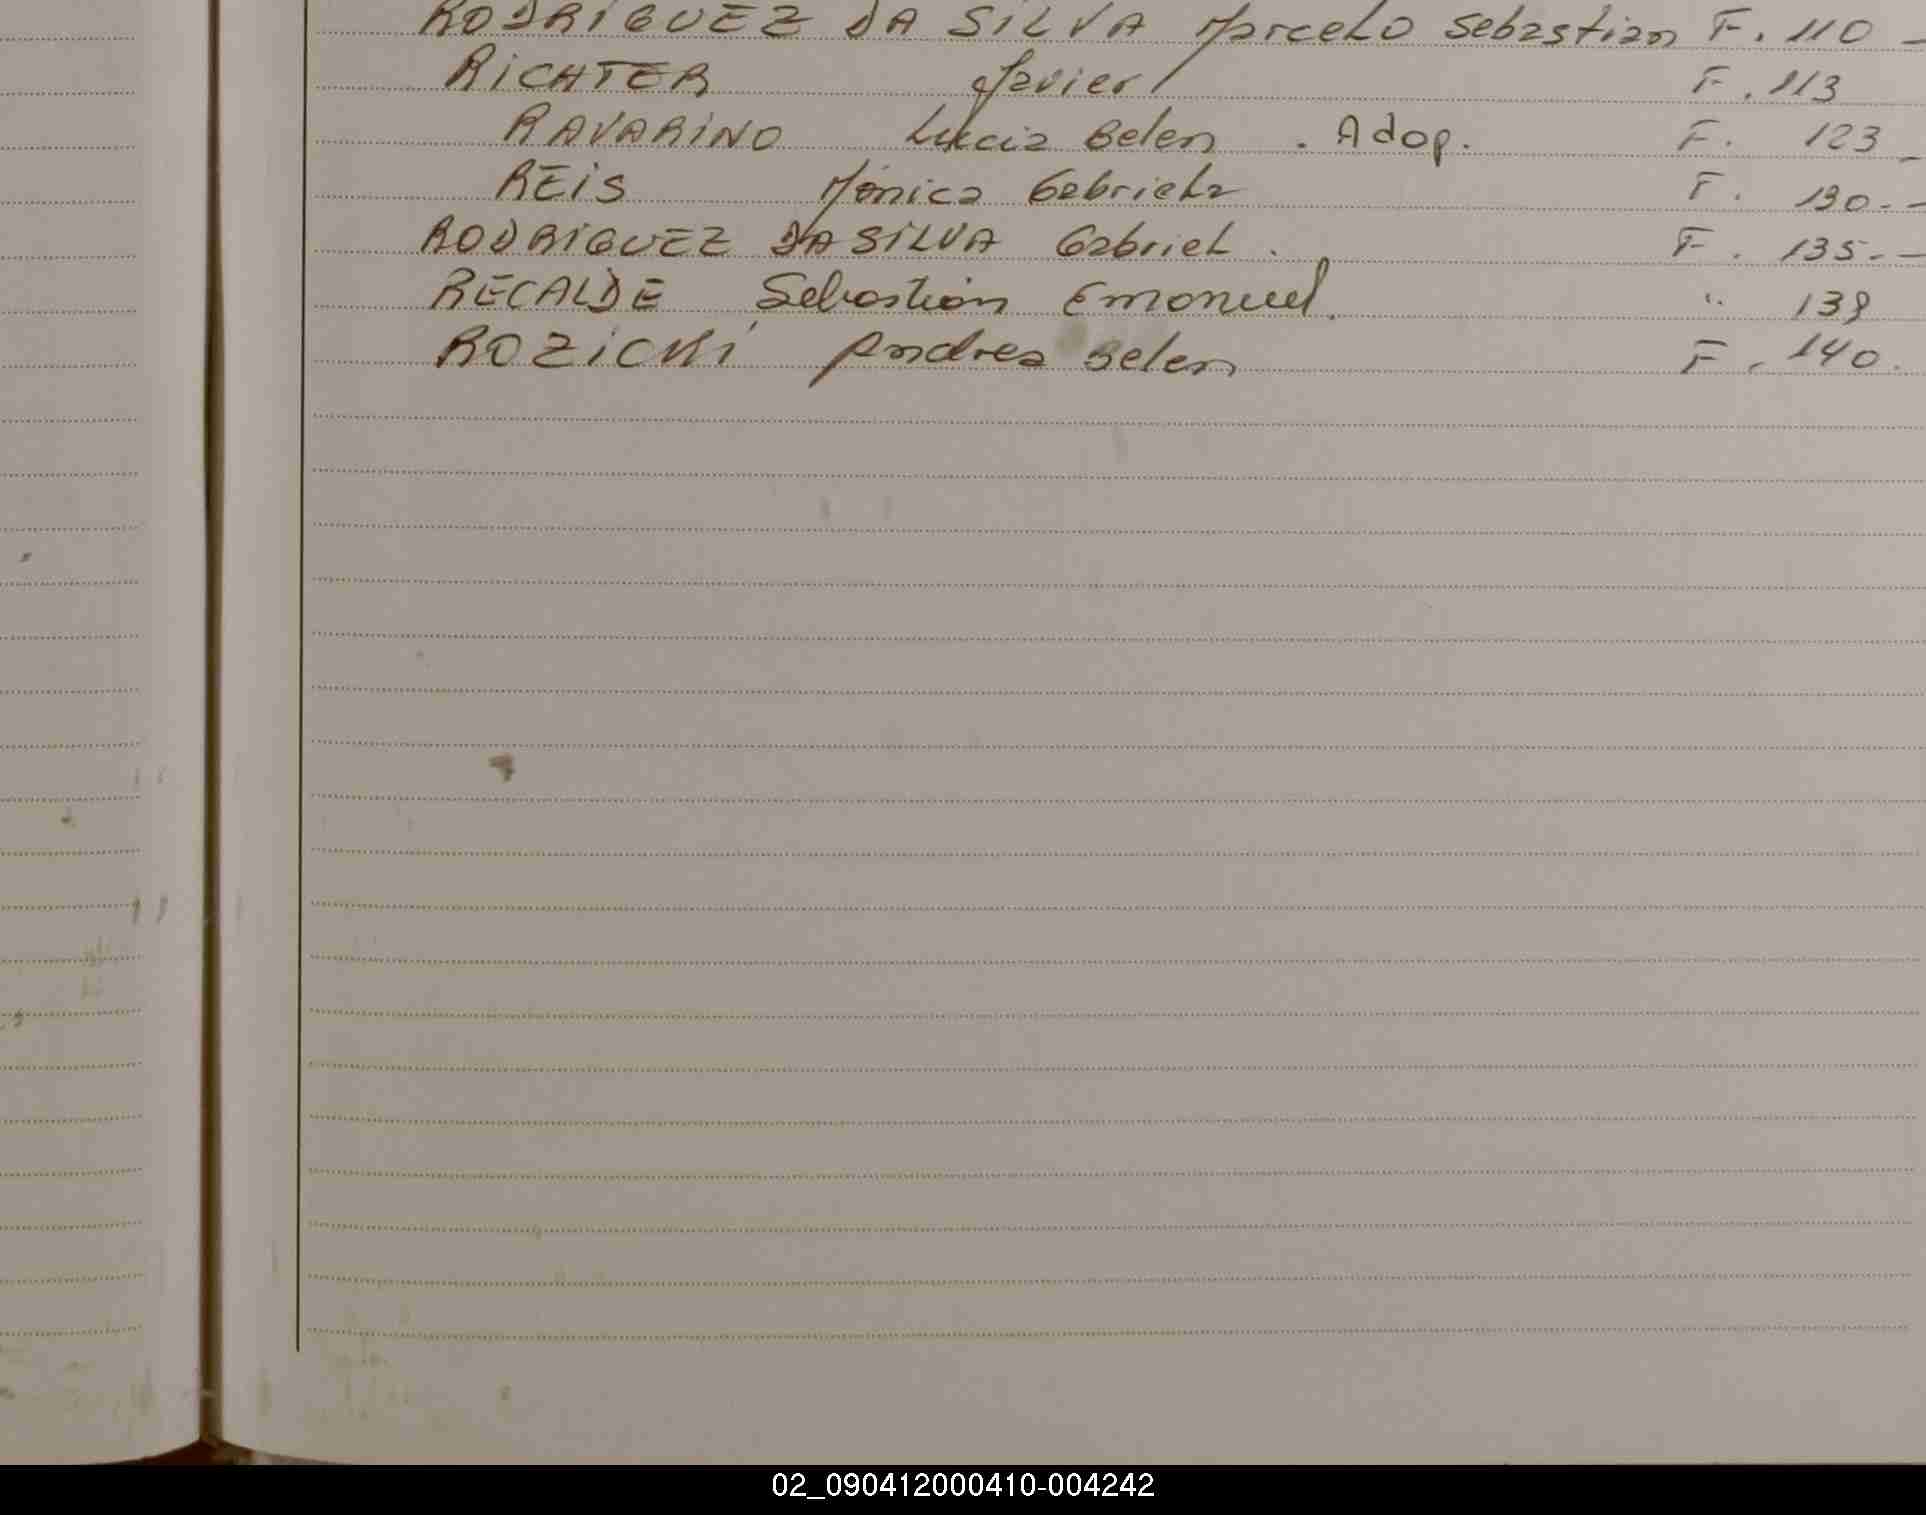 RODRIGUEZ DA SILVA Marcelo Sebastian F. 110 -
RICHTER Javier F. 113
RAVARINO Lucia Belen . Adop. F. 123 -
REIS Mónica Gabriela F. 130.-
RODRIGUEZ DA SILVA Gabriel . F. 135.-
RECALDE, Sebastián Emanuel. " 139
ROZICKI Andrea Belen F. 140.
02_090412000410-004242